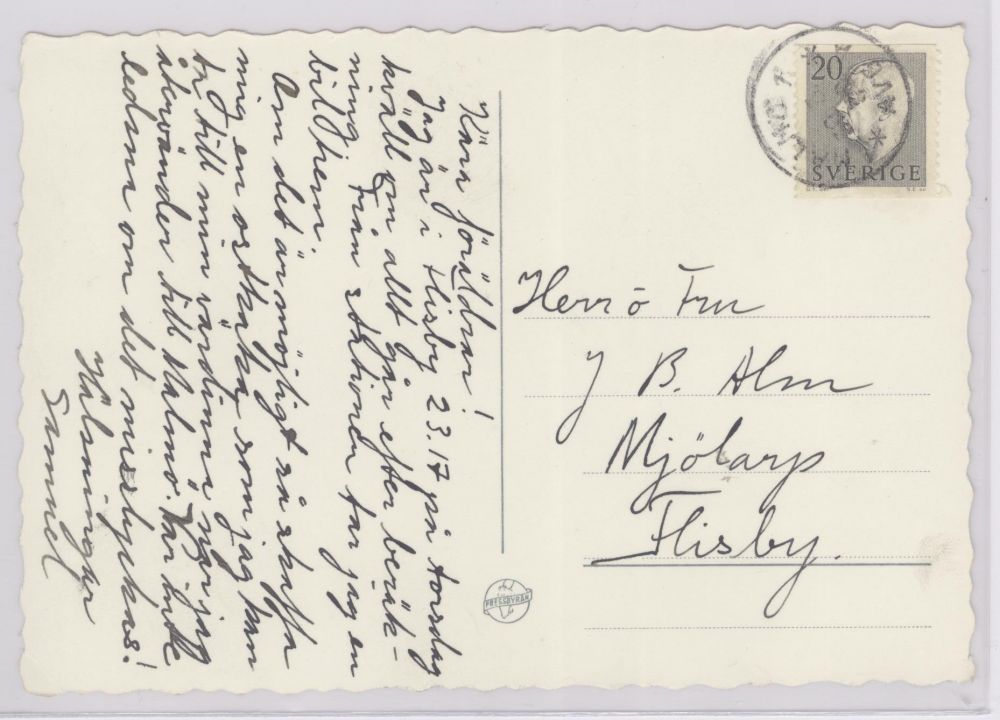 Kära föräldrar!
Jag är i Flisby 23.17 på torsdag
kväll om allt går efter beräk-
ning. Från stationen tar jag en
bil hem.
Om det är möjligt så skaffa
mig en ostkaka som jag kan
ta till min värdinna när jag
återvänder till Malmö. Var inte
ledsna om det misslyckas!
Hälsningar
Samuel
20
SVERIGE
Herr o Fru
J B. Alm
Mjölarp
Flisby.
PRESSBYRÅN